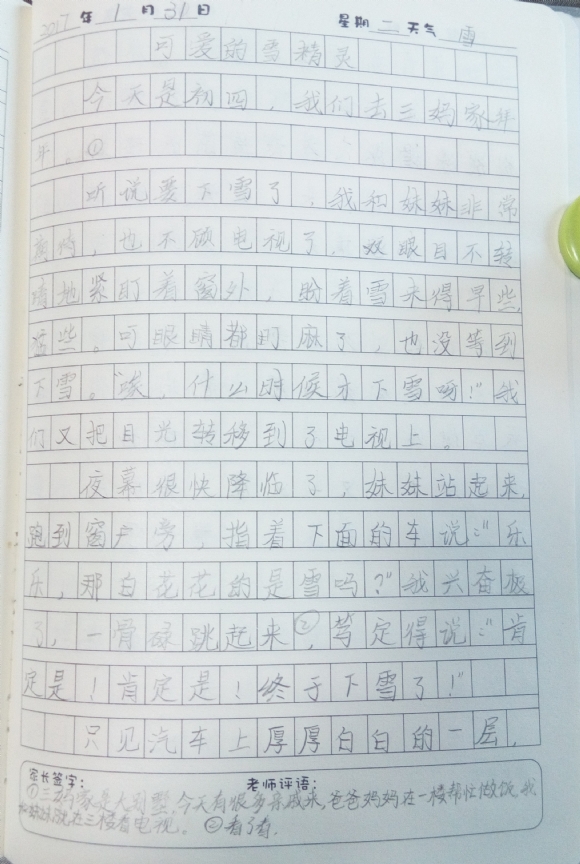 2017年1月31日 星期二天气雪
可爱的雪精灵
今天是初四，我们去三妈家拜
年。①
听说要下雪了，我和妹妹非常
，也不顾电视了，双眼目不转
睛地紧盯着窗外，盼着雪来得早些，
些。可眼睛都盯麻了，也没等到
下雪。“唉，什么时候才下雪呀！”我
们又把目光转移到了电视上。
夜幕很快降临了，妹妹站起来，
跑到窗户旁，指着下面的车说：“乐
乐，那白花花的是雪吗？”我兴奋极
了，一骨碌跳起来②，笃定得说：“肯
定是！肯定是！终于下雪了！”
只见汽车上厚厚白白的一层，
家长签字： 老师评语：
①三妈家是大别墅，今天有很多亲戚来，爸爸妈妈在一楼帮忙做饭，我
和妹妹就在三楼看电视。②看了看，